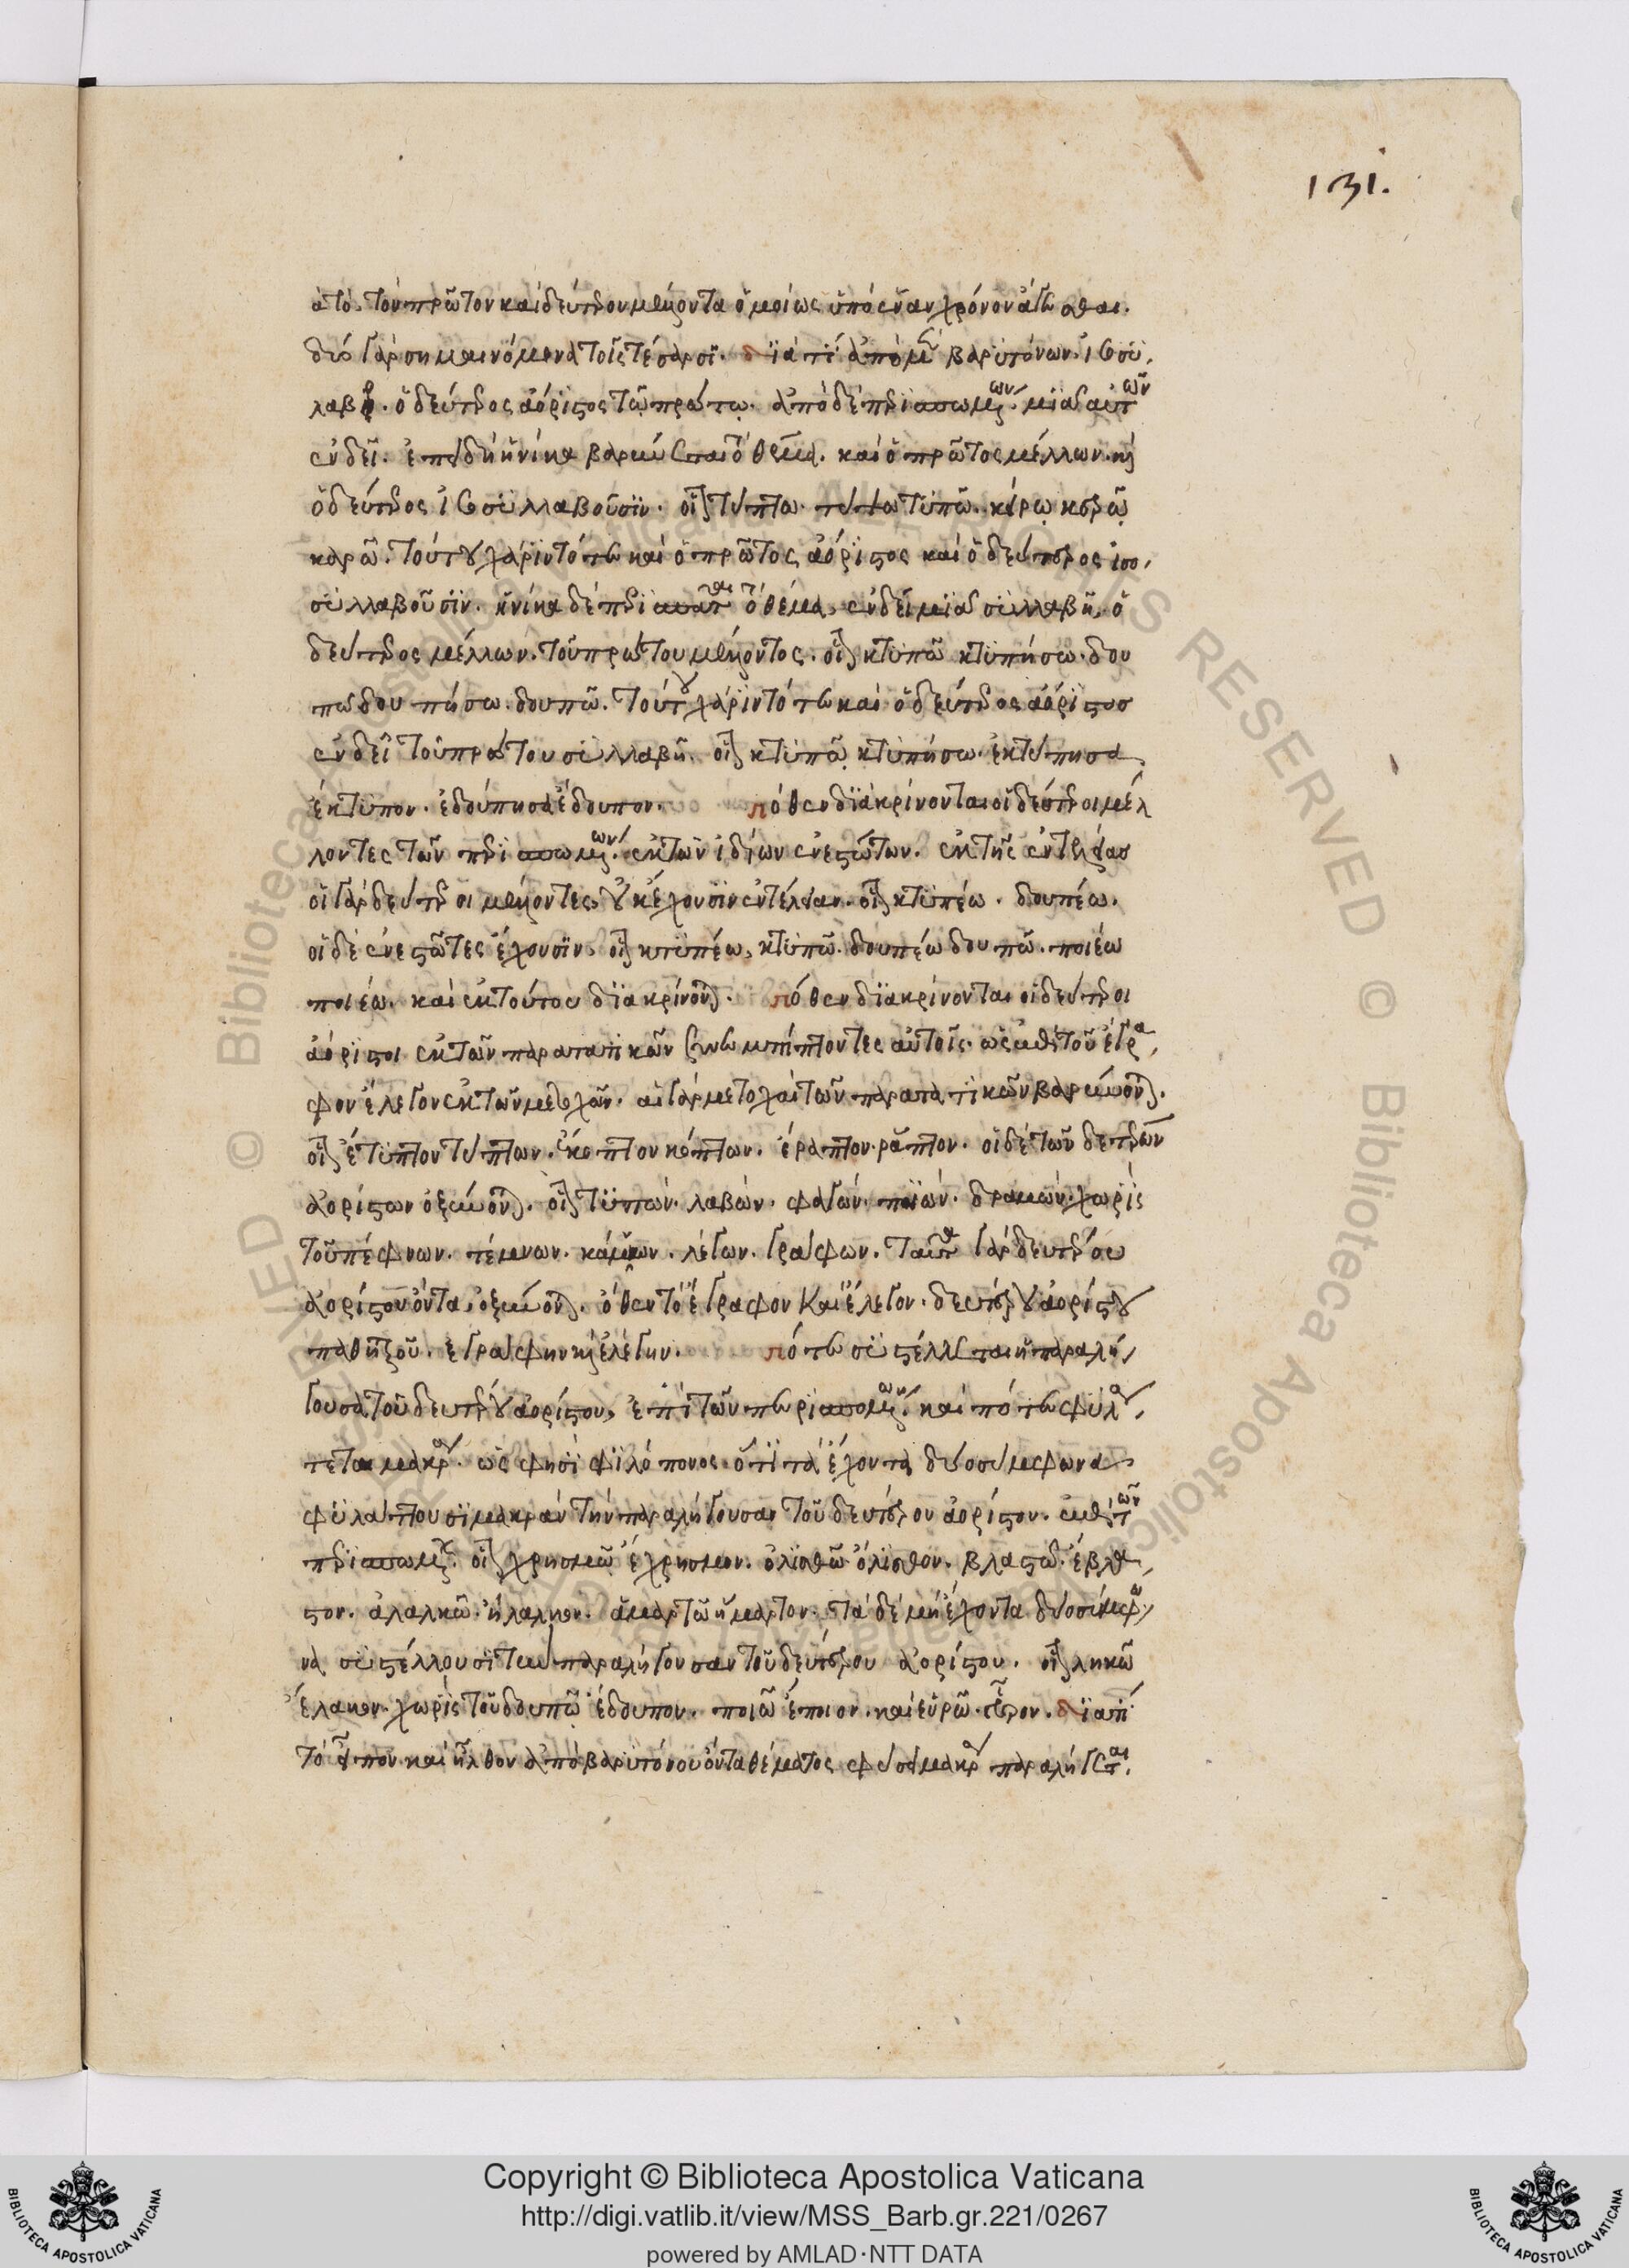 131.
ἀτό. τὸν πρῶτον καὶ δεύτερον μέλλοντα ὁμοίως ὑπὸ ἕναν χρόνον ἄγεσθαι.
δύο γὰρ σημαινόμενα τοῖς τέσαρσϊ. διατί ἀπὸ μὲν βαρϋτόνων ἰσοσϋλ
λαβεῖ. ὁ δεύτερος ἀόριστος τῷ πρώτῳ. ἀπὸ δὲ περισπωμένων μϊᾶ αὐτῶν
ἐνδεῖ. ἐπειδὴ ἡνίκα βαρύνεται τὸ θέμα. καὶ ὁ πρῶτος μέλλων. καὶ
ὁ δεύτερος ἰσοσϋλλαβοῦσϊν. οἷον τύπτω τύψω τϋπῶ. κείρω κερῶ
καρῶ. τούτου χάριν τότε καὶ ὁ πρῶτος ἀόριστος καὶ ὁ δεύτερος ἰσο
σϋλλαβοῦσϊν. ἡνίκα δὲ περισπᾶται τὸ θέμα, ἐνδεῖ μϊᾶ σϋλλαβῆ, ὁ
δεύτερος μέλλων. τοῦ πρώτου μέλλοντος. οἷον κτϋπῶ κτϋπήσω. δου
πῶ δουπήσω. δουπῶ. τούτου χάριν τότε καὶ ὁ δεύτερος ἀόριστοσ
ἐνδεῖ τοῦ πρώτου σϋλλαβῆ. οἷον κτϋπῶ κτϋπήσω. ἐκτύπησα
ἔκτϋπον. ἐδούπησα ἔδουπον. πόθεν δϊακρίνονται οἱ δεύτεροι μέλ
λοντες τῶν περισπωμένων. ἐκ τῶν ἰδίων ἐνεστώτων. ἐκ τῆς ἐντελείασ
οἱ γὰρ δεύτεροι μέλλοντες, οὐκ ἔχουσϊν ἐντέλειαν. οἷον κτϋπέω. δουπέω.
οἱ δὲ ἐνεστῶτες ἔχουσϊν. οἷον κτϋπέω, κτϋπῶ. δουπέω δουπῶ. ποιέω
ποιέω. καὶ ἐκ τούτου δϊακρίνονται. πόθεν δϊακρίνονται οἱ δεύτεροι
ἀόριστοι ἐκ τῶν παρατατικῶν συνεμπίπτοντες αὐτοῖς. ὡς ἐπὶ τοῦ ἔγρα
φον ἔλεγον ἐκ τῶν μετοχῶν. αἱ γὰρ μετοχαὶ τῶν παρατατικῶν βαρύνονται.
οἷον ἔτϋπτον τύπτων. ἔκοπτον κόπτων. ἔραπτον. ράπτον. οἱ δὲ τῶν δευτέρων
ἀορίστων ὀξύνονται. οἷον τϋπών. λαβών. φαγών. πϊών. δραμών. χωρὶς
τοῦ πέφνων. τέμνων. κάμνων. λέγων. γράφων. ταῦτα γὰρ δευτέρου
ἀορίστου ὄντα, ὀξύνονται. ὅθεν τὸ ἔγραφον καὶ ἔλεγον. δευτέρου ἀορίστου
παθητοῦ. ἐγράφην καὶ ἐλέγην. πότε σϋστέλλεται ἡ παραλή
γουσα τοῦ δευτέρου ἀορίστου, ἐπὶ τῶν περισπωμένων. καὶ πότε φϋλάτ
τεται μακρά. ὥς φησϊ φϊλόπονος. ὅτϊ τὰ ἔχοντα δύο σύμφωνα
φϋλάττουσϊ μακρὰν τὴν παραλήγουσαν τοῦ δευτέρου ἀορίστου. ἐπὶ τῶν
περισπωμένων. οἷον χρησμῶ ἔχρησμον. ὀλϊσθῶ ὄλϊσθον. βλαστῶ. ἔβλα
στον. ἀλαλκῶ. ἤλαλκον. ἁμαρτῶ ἥμαρτον. τὰ δὲ μὴ ἔχοντα δύο σύμφω
να σϋστέλλουσϊ τὴν παραλήγουσαν τοῦ δευτέρου ἀορίστου. οἷον ληκῶ
ἔλακον. χωρὶς τοῦ δουπῶ ἔδουπον. ποιῶ ἔποιον. καὶ εὑρῶ. εὗρον. διατί
τὸ εἶπον καὶ ἦλθον ἀπὸ βαρϋτόνου ὄντα θέματος φύσει μακρᾶ παραλήγεται.
Copyright © Biblioteca Apostolica Vaticana
http://digi.vatlib.it/view/MSS_Barb.gr.221/0267
powered by AMLAD·NTT DATA